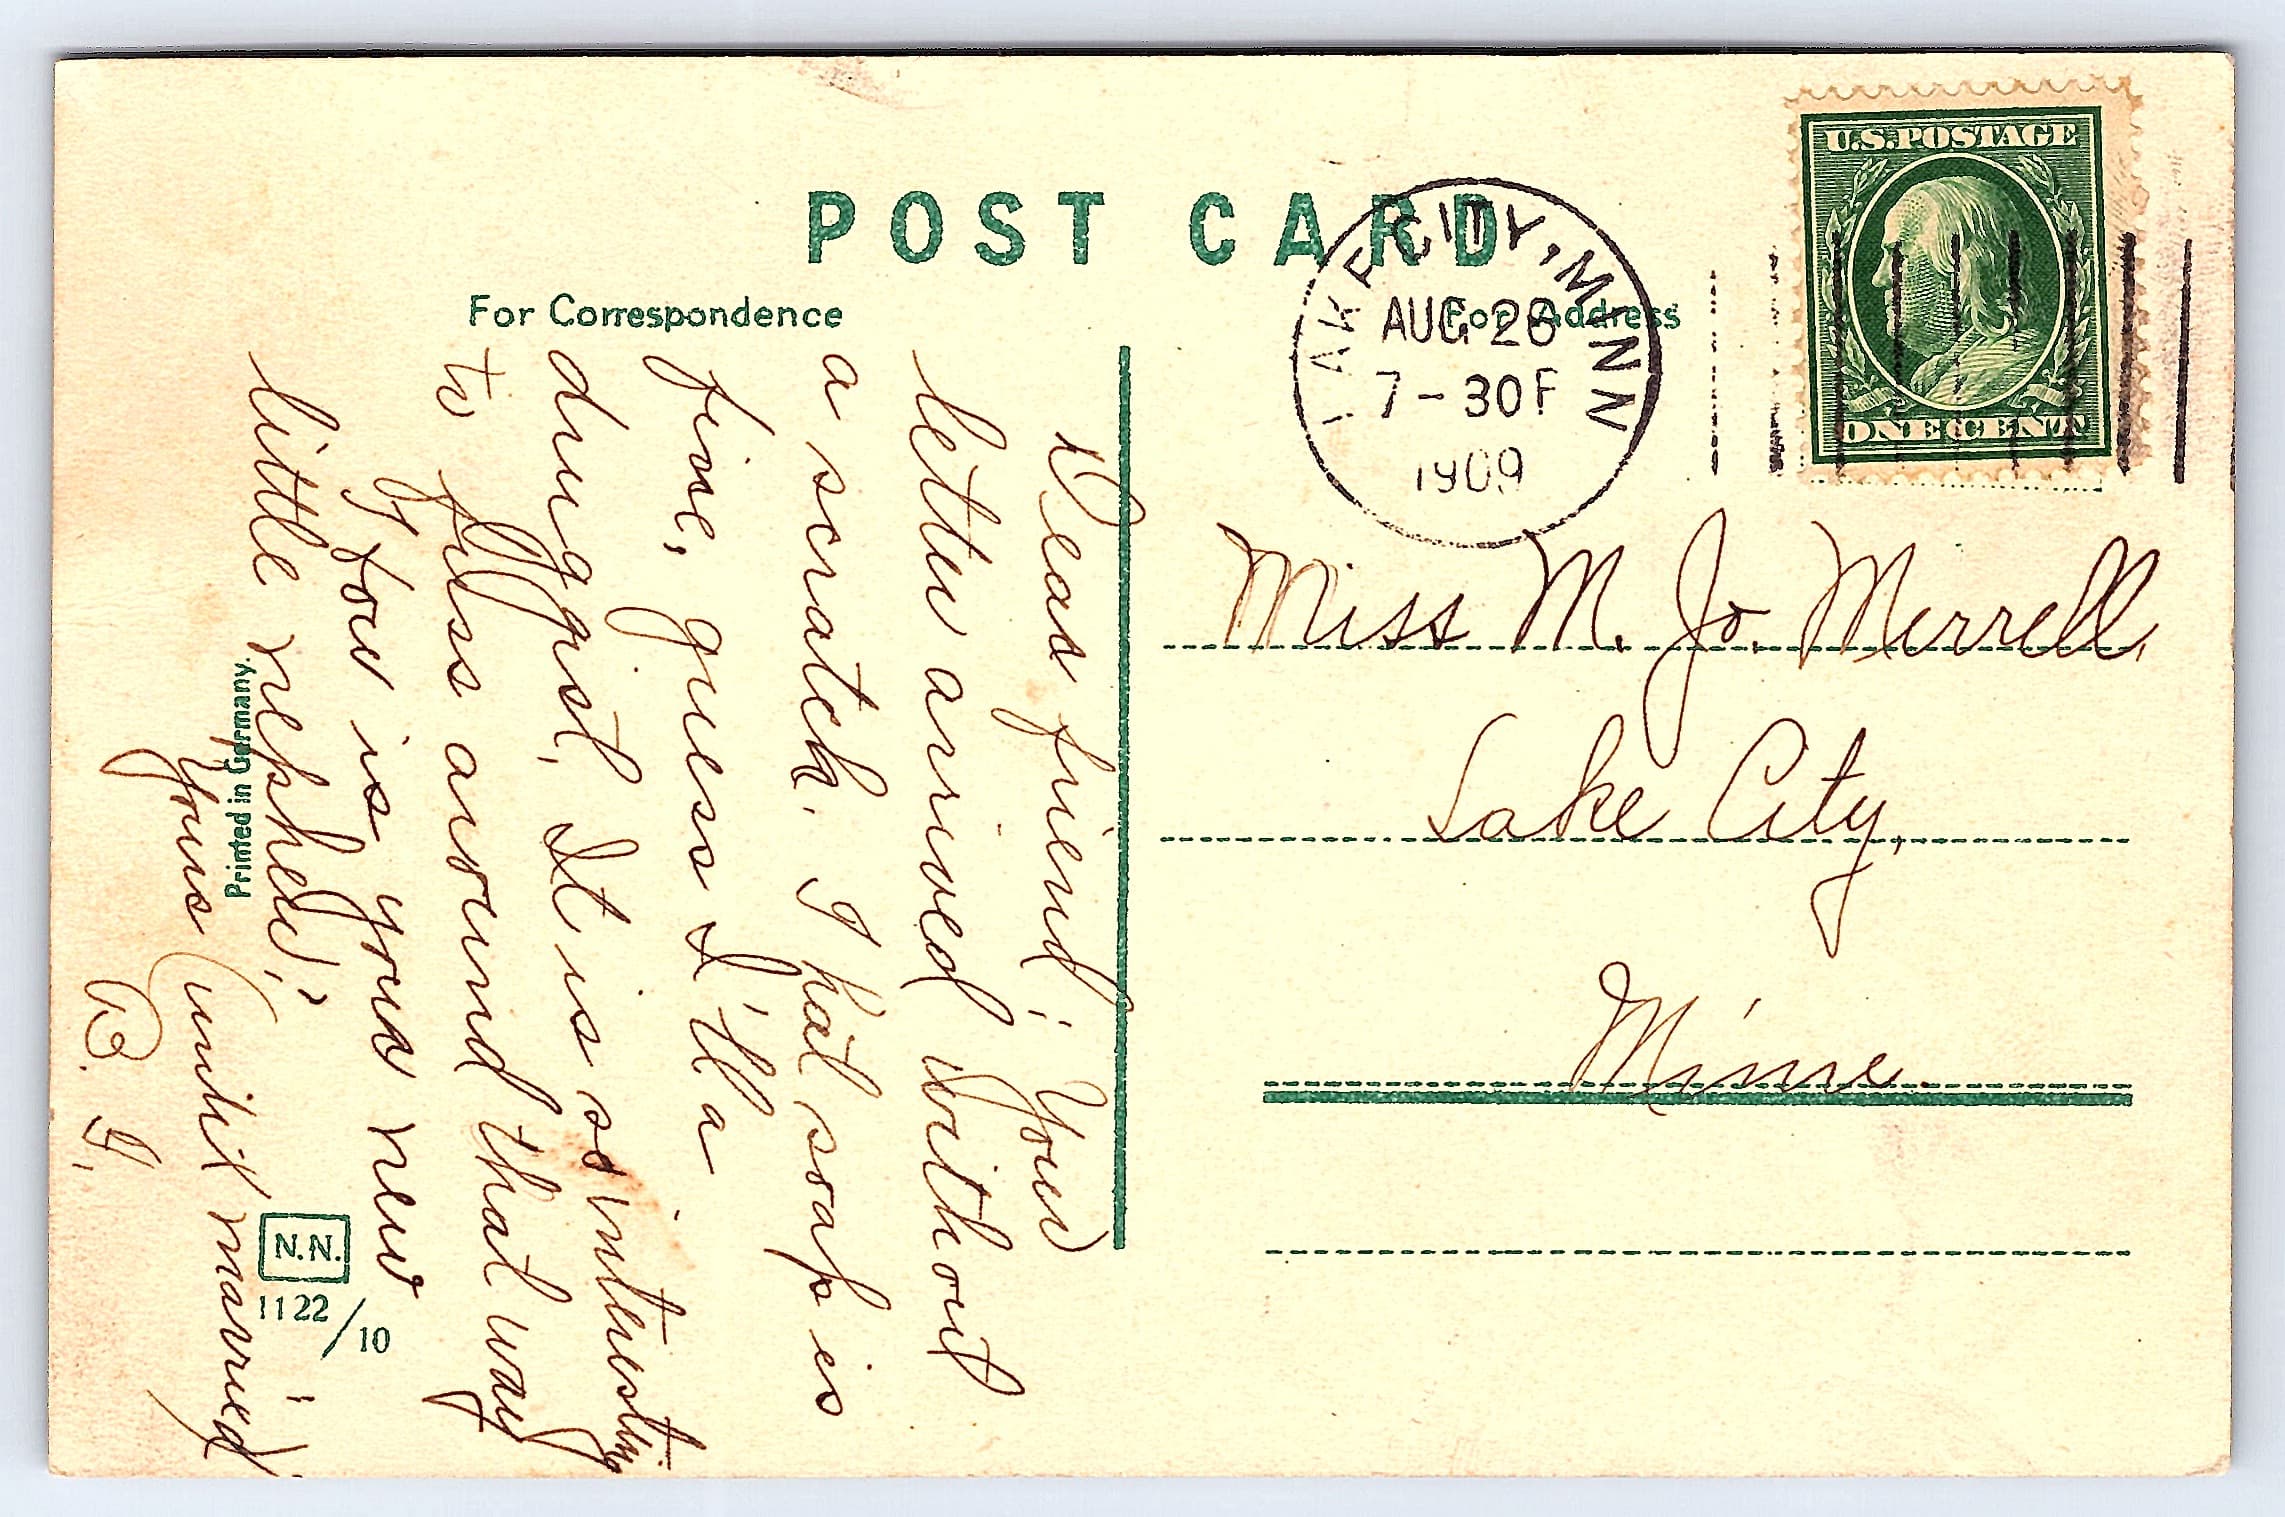 POST CARD
For Correspondence
For Address
U.S. POSTAGE
ONE CENT
LAKE CITY, MINN
AUG 26
7-30P
1909
Miss M. Jo. Merrell,
Lake City,
Minn.
Dear friend; Your
letter arrived without
a scratch. I hat soap is
fine, guess I'll a
druggist. It is so interesting
to fuss around that way
How is your new
little nephew;
Yours until married
B. I.
Printed in Germany.
N.N.
1122/10